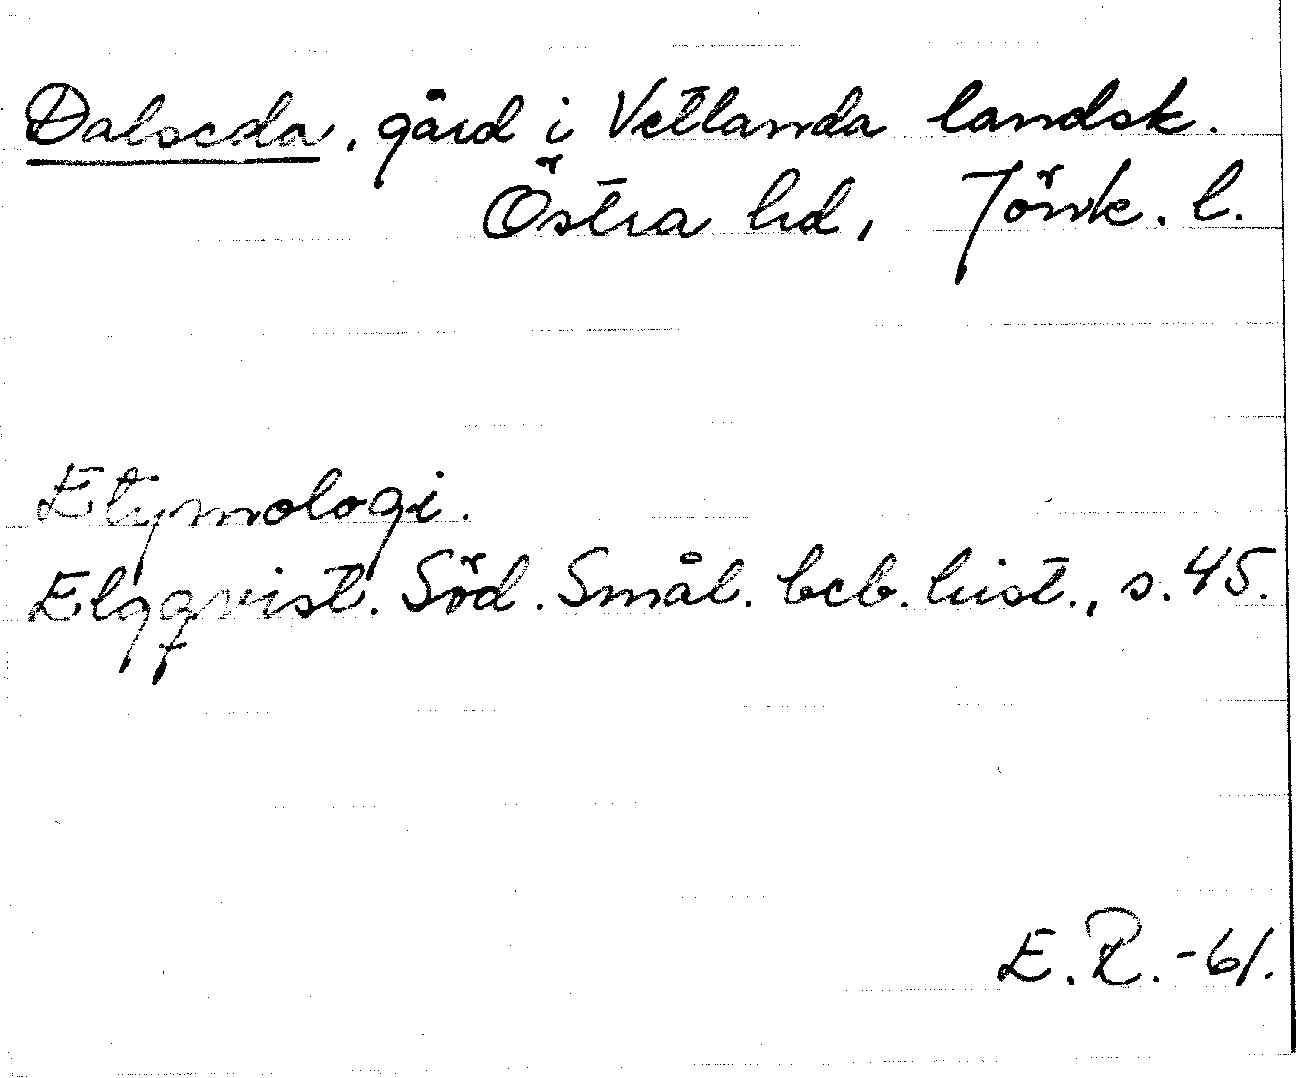 Dalseda, gård i Vetlanda landsk.
Östra hd, Jönk. l.
Etymologi.
Elgqvist. Söd. Smål. beb. hist., s. 45.
E. R. -61.